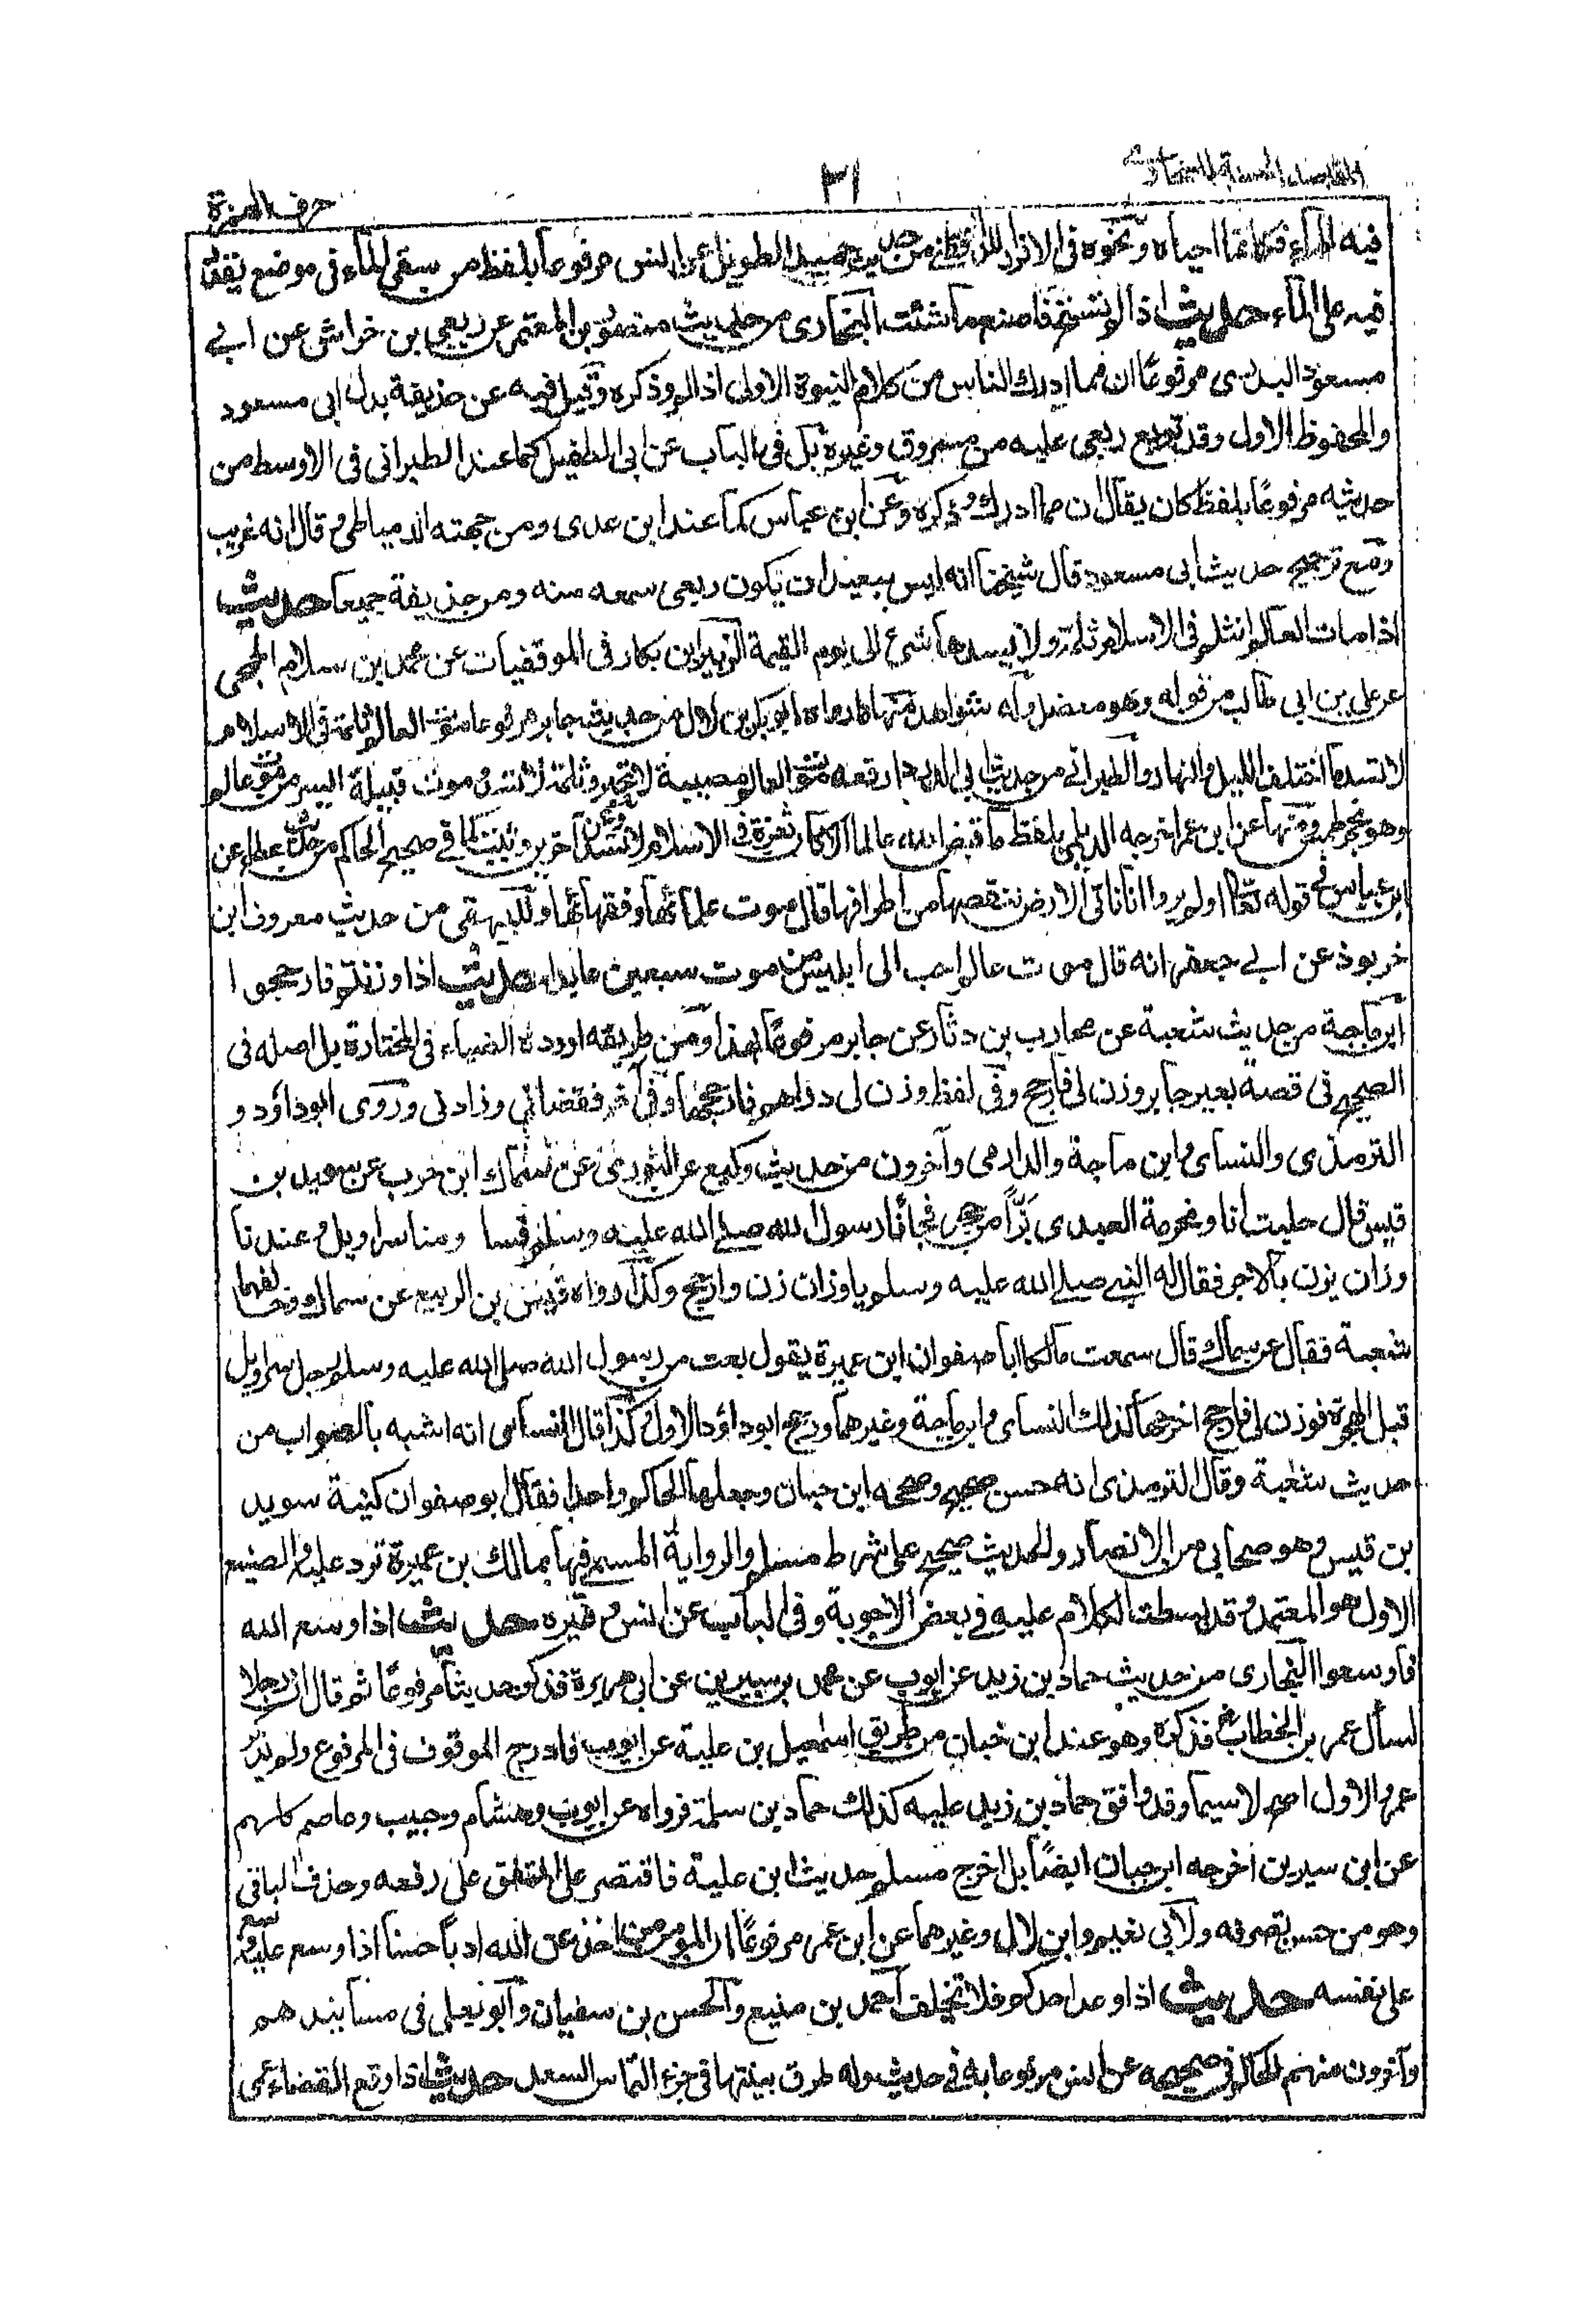 المقاصد الحسنة للسخاوي
٣١
حرف الهمزة
فيه الماء فكانما احياه ونحوه فى الافراد للدارقطنے من حديث حميد الطويل عن انس مرفوعا بلفظ من سقى الماء فى موضع يقدر
فيه على الماء حديث اذا لم تستحى فاصنع ما شئت البخارى من حديث منصور بن المعتمر عن ربعي بن خراش عن ابے
مسعود البدرى مرفوعًا ان مما ادرك الناس من كلام النبوة الاولى اذا لم وذكره وقيل فيه عن حذيفة بدل ابى مسعود
والمحفوظ الاول وقد توبع ربعي عليه من مسروق وغيره بل فى الباب عن ابى الطفيل كما عند الطبرانى فى الاوسط من
حديثه مرفوعًا بلفظ كان يقال ان مما ادرك وذكره وعن ابن عباس كما عند ابن عدى ومن جهته الدمياطى وقال انه غريب
ومع ترجيح حديث ابى مسعود قال شيخنا انه ليس ببعيد ان يكون ربعى سمعه منه ومن حذيفة جميعا حديث
اذا مات العالم انثلم فى الاسلام ثلمة ولا يسدها شئ الى يوم القيمة الزبير ابن بكار فى الموفقيات عن محمد بن سلام الجمحى
عن على بن ابى طالب من قوله وهو معضل وله شواهد منها ما رواه ابو بكر بن لال من حديث جابر مرفوعا موت العالم ثلمة فى الاسلام
لا تسد ما اختلف الليل والنهار والطبرانے من حديث ابى الدرداء رفعه موت العالم مصيبة لا تجبر وثلمة لا تسد وموت قبيلة ايسر من موت عالم
وهو نجم طمس ومنها عن ابن عمر اخرجه الديلمى بلفظ ما قبض الله عالما الا كان ثغرة فى الاسلام لا تسد وعن آخرين وثبت كما فى صحيح الحاكم من حديث عطاء عن
ابن عباس فى قوله تعا اولم يروا انا ناتى الارض ننقصها من اطرافها قال موت علمائها وفقهائها وللبيهقى من حديث معروف ابن
خربوذ عن ابے جعفر انه قال موت عالم احب الى ابليس من موت سبعين عابدا حديث اذا وزنتم فارجحوا
ابن ماجة من حديث شعبة عن محارب بن دثار عن جابر مرفوعًا بهذا ومن طريقه اورده الضياء فى المختارة بل اصله فى
الصحيح فى قصة بعير جابر وزن لى فارجح وفى لفظ وزن لى دراهم فارجحها وفى آخر فقضانى وزادنى وروى ابو داؤد و
الترمذى والنسائ وابن ماجة والدارمى وآخرون من حديث وكيع عن الثورى عن سماك ابن حرب عن سويد بن
قيس قال جلبت انا ومخرمة العبدى بزًّا من هجر فجاءنا رسول الله صلے الله عليه وسلم فساومنا سراويل وعندنا
وزان يزن بالاجر فقال له النبے صلے الله عليه وسلم يا وزان زن وارجح وكذا رواه قيس بن الربيع عن سماك وخالفهما
شعبة فقال عن سماك قال سمعت مالكا ابا صفوان ابن عميرة يقول بعت من رسول الله صلے الله عليه وسلم رجل سراويل
قبل الهجرة فوزن لى فارجح اخرجهما كذلك النسائ وابن ماجة وغيرهما ورجح ابو داؤد الاول وكذا قال النسائى انه اشبه بالصواب من
حديث شعبة وقال الترمذى انه حسن صحيح وصححه ابن حبان وجعلها الحاكم واحدا فقال ابو صفوان كنية سويد
بن قيس وهو صحابى من الانصار والحديث صحيح على شرط مسلم والرواية المسمى فيها بمالك بن عميرة ترد عليه والصنيع
الاول هو المعتمد وقد بسطت الكلام عليه فى بعض الاجوبة وفى الباب عن انس وغيره حديث اذا وسع الله
فاوسعوا البخارى من حديث حماد بن زيد عن ايوب عن محمد بن سيرين عن ابى هريرة فذكر حديثا مرفوعًا ثم قال ان رجلا
سأل عمر بن الخطاب فذكره وهو عند ابن حبان من طريق اسمعيل بن علية عن ايوب فادرج الموقوف فى المرفوع ولم يذكر
عمر والاول اصح لا سيما وقد وافق حماد بن زيد عليه كذلك حماد بن سلمة فرواه عن ايوب وهشام وحبيب وعاصم كلهم
عن ابن سيرين اخرجه ابن حبان ايضًا بل اخرج مسلم حديث ابن علية فاقتصر على المتفق على رفعه وحذف الباقى
وهو من حسن تصرفه ولابى نعيم وابن لال وغيرهما عن ابن عمر مرفوعًا ان المؤمن اخذ عن الله ادبا حسنا اذا وسع عليه وسع
على نفسه حديث اذا وعد احدكم فلا يخلف احمد بن منيع والحسن بن سفيان وابو يعلى فى مسانيدهم
وآخرون منهم الحاكم فى صحيحه عن انس مرفوعا به فى حديث وله طرق بينتها فى جزء التماس السعد حديث اذا وقع القضاء عمى